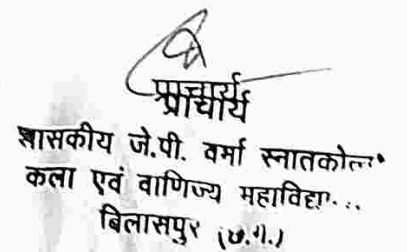 प्राचार्य
शासकीय जे.पी. वर्मा स्नातकोत्त
कला एवं वाणिज्य महाविद्या
बिलासपुर (छ.ग.)